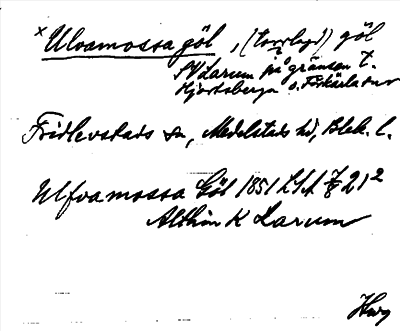 x Ulvamossa göl, (torrlagd) göl
SV Larum på gränsen t.
Hjortsberga o. Förkärla snr
Fridlevstads sn, Medelstads hd, Blek. l.
Ulfvamossa Göl 1851 LSA
Allhin K Larum